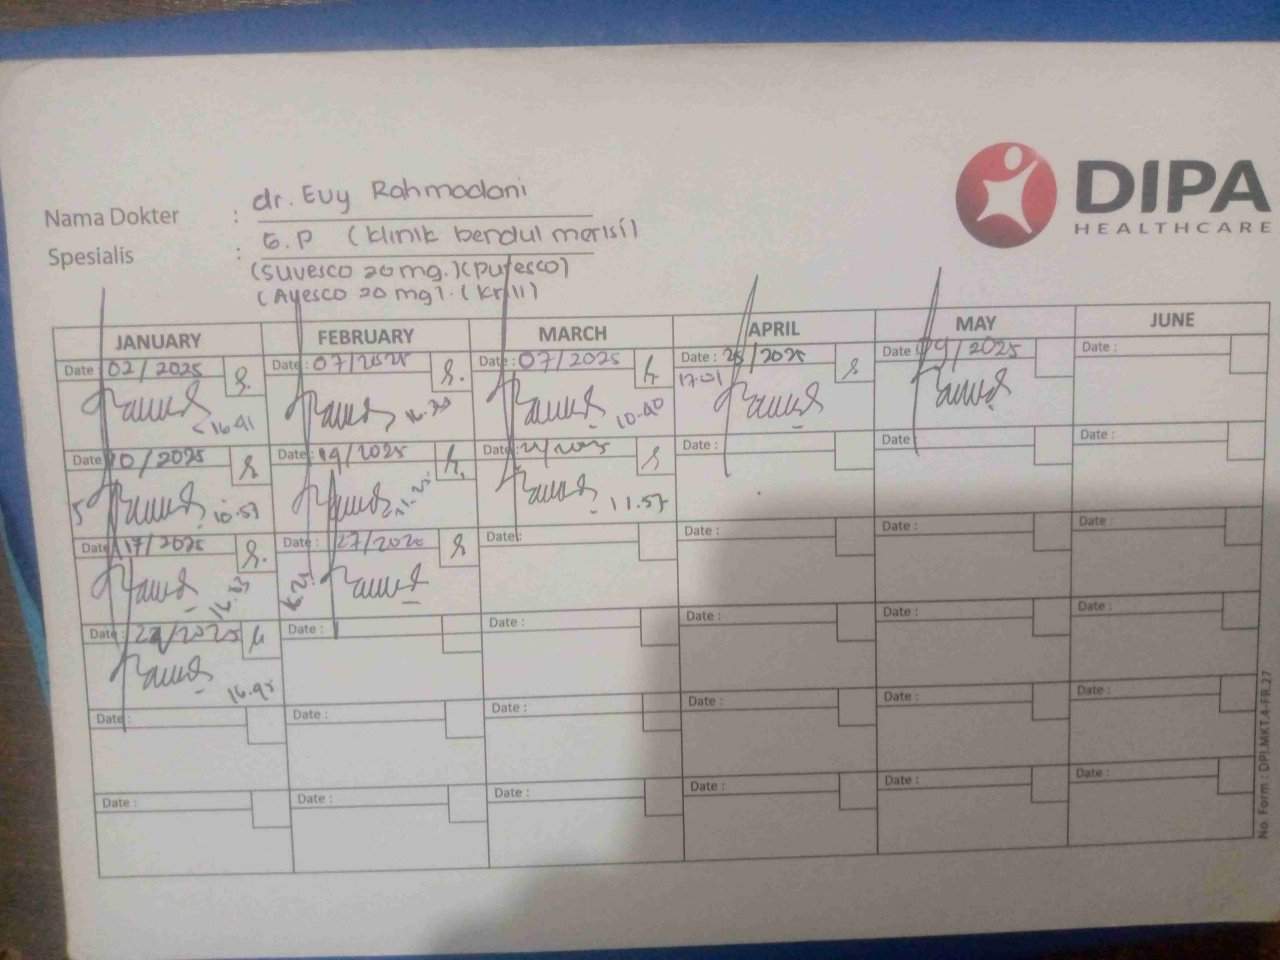 DIPA
HEALTHCARE
Nama Dokter : dr. Evy Rahmadani
Spesialis : G.P (klinik bendul merisi)
(Suvesco 20 mg.) (Pufesco)
(Ayesco 20 mg). (Krill)
JANUARY FEBRUARY MARCH APRIL MAY JUNE
Date : 02/2025 Date : 07/2025 Date : 07/2025 Date : 25/2025 Date 09/2025 Date :
16.41 16.30 10.40 17.01
Date 10/2025 Date : 19/2025 Date : 21/2025 Date : Date Date :
10.57 11.25 11.57
Date : 17/2025 Date : 27/2025 Date : Date : Date : Date :
16.33 16.25
Date : 24/2025 Date : Date : Date : Date : Date :
16.45
Date : Date : Date : Date : Date : Date :
Date : Date : Date : Date : Date : Date :
No. Form : DPI.MKT.4-FR.27